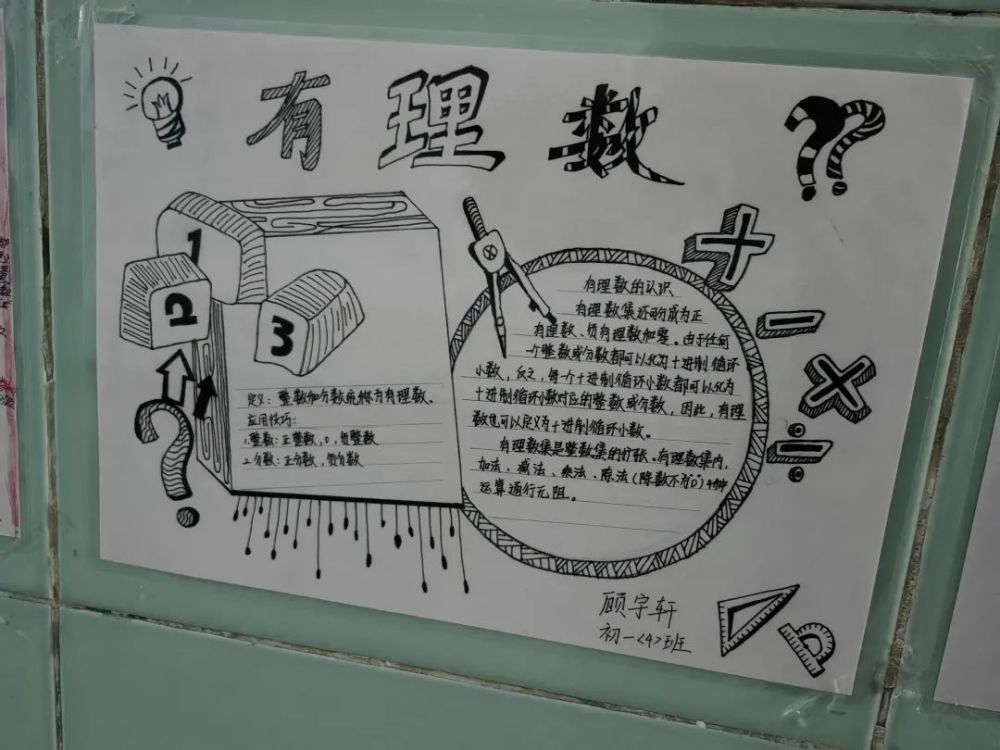 有理数
??
1
2
3
?
定义：整数和分数统称为有理数。
应用技巧：
1.整数：正整数，0，负整数
2.分数：正分数，负分数
有理数的认识
有理数集还可分成为正
有理数、负有理数和零。由于任何
一个整数或分数都可以化为十进制循环
小数，反之，每一个十进制循环小数都可以化为
十进制循环小数对应的整数或分数，因此，有理
数也可以定义为十进制循环小数。
有理数集是整数集的扩张。有理数集内，
加法、减法、乘法、除法（除数不为"0"）4种
运算通行无阻。
+
-
×
÷
顾宇轩
初一<4>班